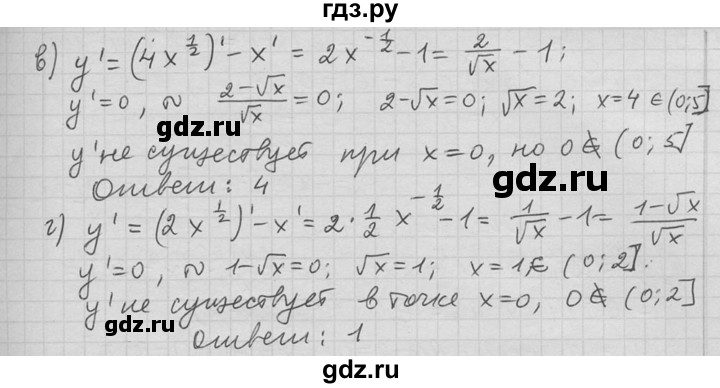 гдз.ру
в) y' = (4x^{1/2})' - x' = 2x^{-1/2} - 1 = 2/√x - 1;
y' = 0, ~ (2-√x)/√x = 0; 2-√x = 0; √x = 2; x = 4 ∈ (0; 5]
gdz.ru gdz.ru
y' не существует при x = 0, но 0 ∉ (0; 5]
gdz.ru
Ответ: 4
г) y' = (2x^{1/2})' - x' = 2·1/2 x^{-1/2} - 1 = 1/√x - 1 = (1-√x)/√x
gdz.ru gdz.ru
y' = 0, ~ 1-√x = 0; √x = 1; x = 1 ∈ (0; 2].
y' не существует в точке x = 0, 0 ∉ (0; 2]
gdz.ru gdz.ru
Ответ: 1
gdz.ru